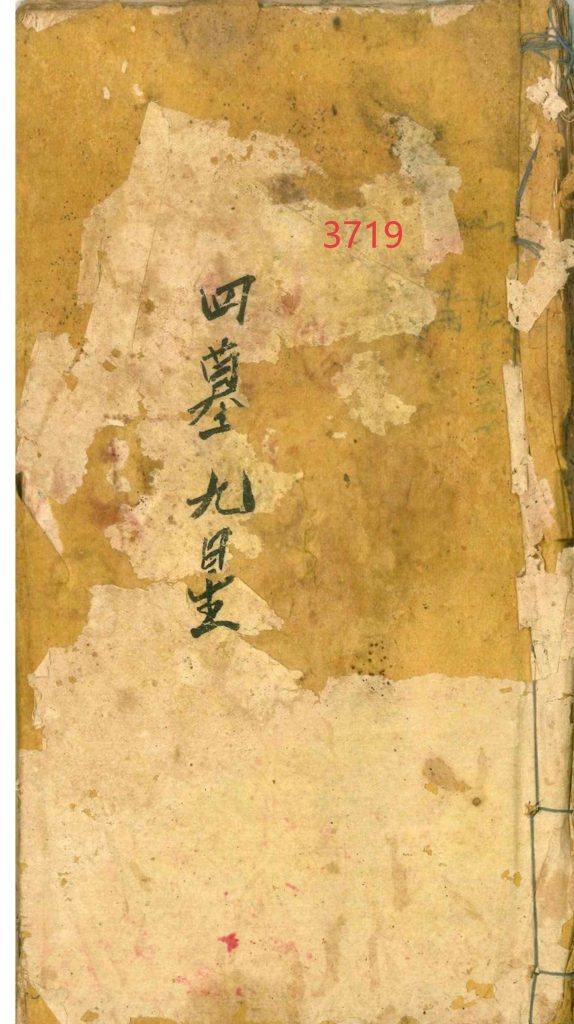 3719
四墓九星